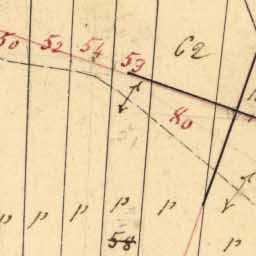 C2
50 52 54 53
80
p p p p p p
58 p